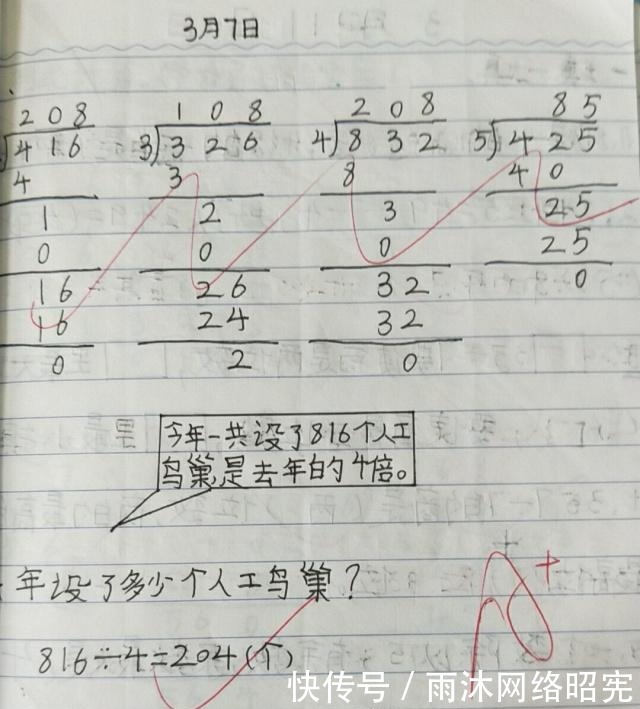 3月7日
208
416
4
1
0
16
16
0
108
3)326
3
2
0
26
24
2
208
4)832
8
3
0
32
32
0
85
5)425
40
25
25
0
今年一共设了816个人工
鸟巢是去年的4倍。
年设了多少个人工鸟巢?
816÷4=204(个)
快传号/雨沐网络昭宪